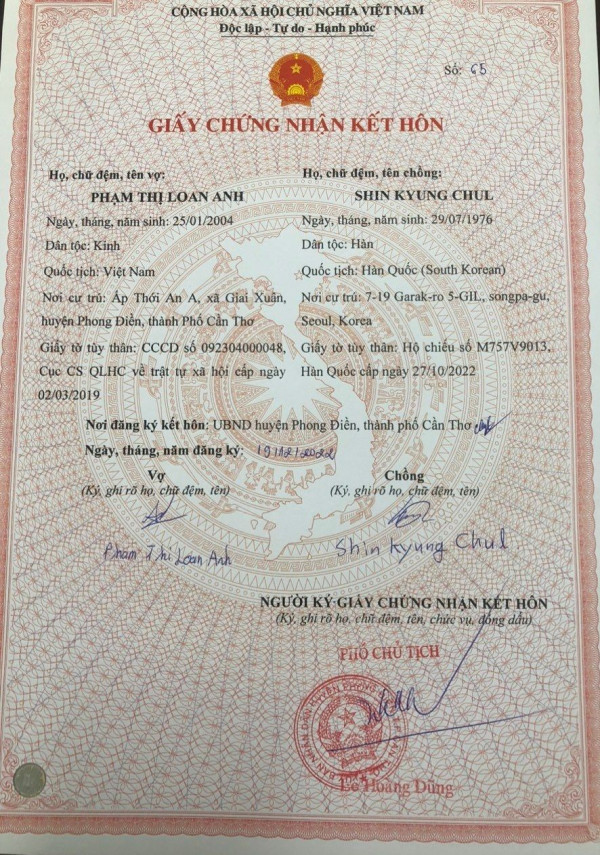 CỘNG HÒA XÃ HỘI CHỦ NGHĨA VIỆT NAM
Độc lập - Tự do - Hạnh phúc
Số: 65
GIẤY CHỨNG NHẬN KẾT HÔN
Họ, chữ đệm, tên vợ:
PHẠM THỊ LOAN ANH
Ngày, tháng, năm sinh: 25/01/2004
Dân tộc: Kinh
Quốc tịch: Việt Nam
Nơi cư trú: Ấp Thới An A, xã Giai Xuân,
huyện Phong Điền, thành Phố Cần Thơ
Giấy tờ tùy thân: CCCD số 092304000048,
Cục CS QLHC về trật tự xã hội cấp ngày
02/03/2019
Họ, chữ đệm, tên chồng:
SHIN KYUNG CHUL
Ngày, tháng, năm sinh: 29/07/1976
Dân tộc: Hàn
Quốc tịch: Hàn Quốc (South Korean)
Nơi cư trú: 7-19 Garak-ro 5-GIL, songpa-gu,
Seoul, Korea
Giấy tờ tùy thân: Hộ chiếu số M757V9013,
Hàn Quốc cấp ngày 27/10/2022
Nơi đăng ký kết hôn: UBND huyện Phong Điền, thành phố Cần Thơ
Ngày, tháng, năm đăng ký: 19/12/2022
Vợ
(Ký, ghi rõ họ, chữ đệm, tên)
Phạm Thị Loan Anh
Chồng
(Ký, ghi rõ họ, chữ đệm, tên)
Shin Kyung Chul
NGƯỜI KÝ GIẤY CHỨNG NHẬN KẾT HÔN
(Ký, ghi rõ họ, chữ đệm, tên, chức vụ, đóng dấu)
PHÓ CHỦ TỊCH
Lê Hoàng Dũng